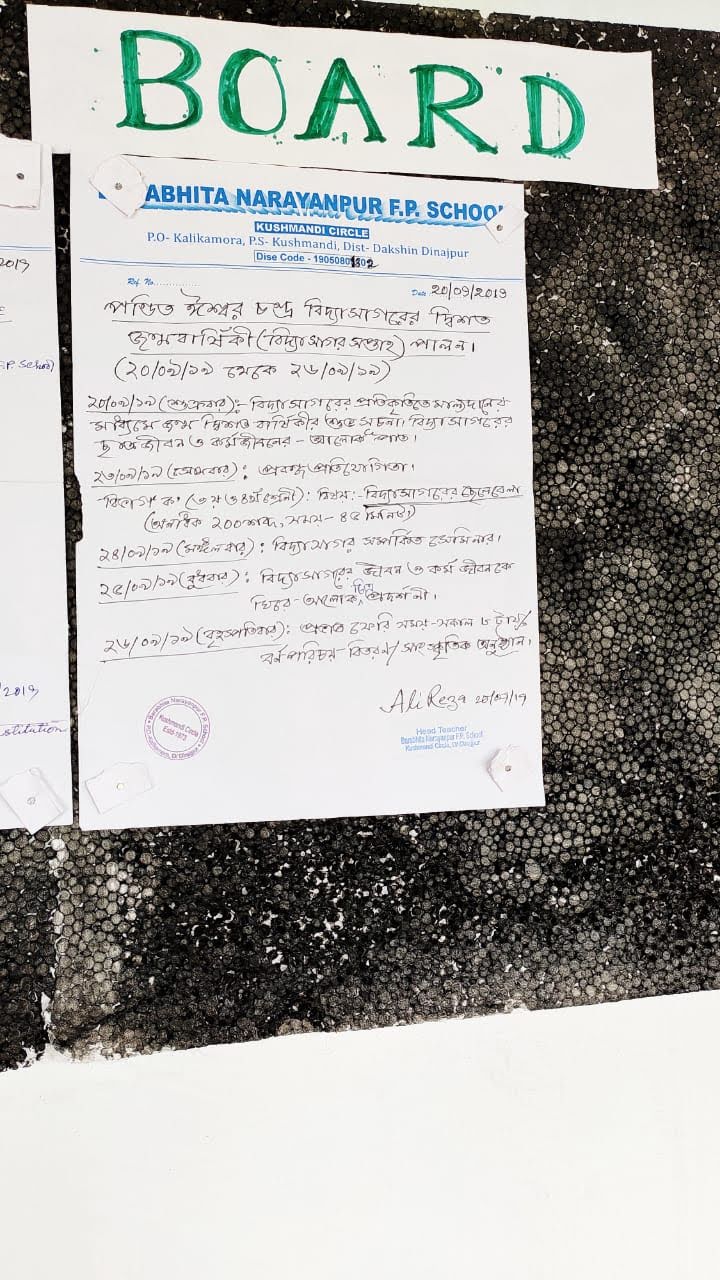 BOARD
ABHITA NARAYANPUR F.P. SCHOOL
KUSHMANDI CIRCLE
P.O- Kalikamora, P.S- Kushmandi, Dist- Dakshin Dinajpur
Dise Code - 1905080
Ref. No.
Date 20/09/2019
পণ্ডিত ঈশ্বর চন্দ্র বিদ্যাসাগরের দ্বিশত
জন্মবার্ষিকী (বিদ্যাসাগর সপ্তাহ) পালন।
(২০/০৯/১৯ থেকে ২৬/০৯/১৯)
২০/০৯/১৯ (শুক্রবার):- বিদ্যাসাগরের প্রতিকৃতিতে মাল্যদানের
মাধ্যমে জন্ম দ্বিশত বার্ষিকীর শুভ সূচনা। বিদ্যাসাগরের
জীবন ও কর্মজীবনের - আলোকপাত।
২৩/০৯/১৯ (সোমবার): প্রবন্ধ প্রতিযোগিতা।
বিভাগ ক' (৩য় ও ৪র্থ শ্রেণী): বিষয়:- বিদ্যাসাগরের ছেলেবেলা
(অনধিক ২০০ শব্দ, সময়- ৪৫ মিনিট)
২৪/০৯/১৯ (মঙ্গলবার): বিদ্যাসাগর সম্পর্কিত সেমিনার।
২৫/০৯/১৯ (বুধবার): বিদ্যাসাগরের জীবন ও কর্ম জীবনকে
ঘিরে- আলোক চিত্র প্রদর্শনী।
২৬/০৯/১৯ (বৃহস্পতিবার): প্রভাত ফেরি সময়-সকাল ৮ টায়/
বর্ণপরিচয়-বিতরণ/সাংস্কৃতিক অনুষ্ঠান।
Ali Reza 20/09/19
Head Teacher
Barabhita Narayanpur F.P. School
Kushmandi Circle, D/Dinajpur
Barabhita Narayanpur F.P. School
Kushmandi Circle
Estd-1973
2019
F.P. School
/2019
stitution